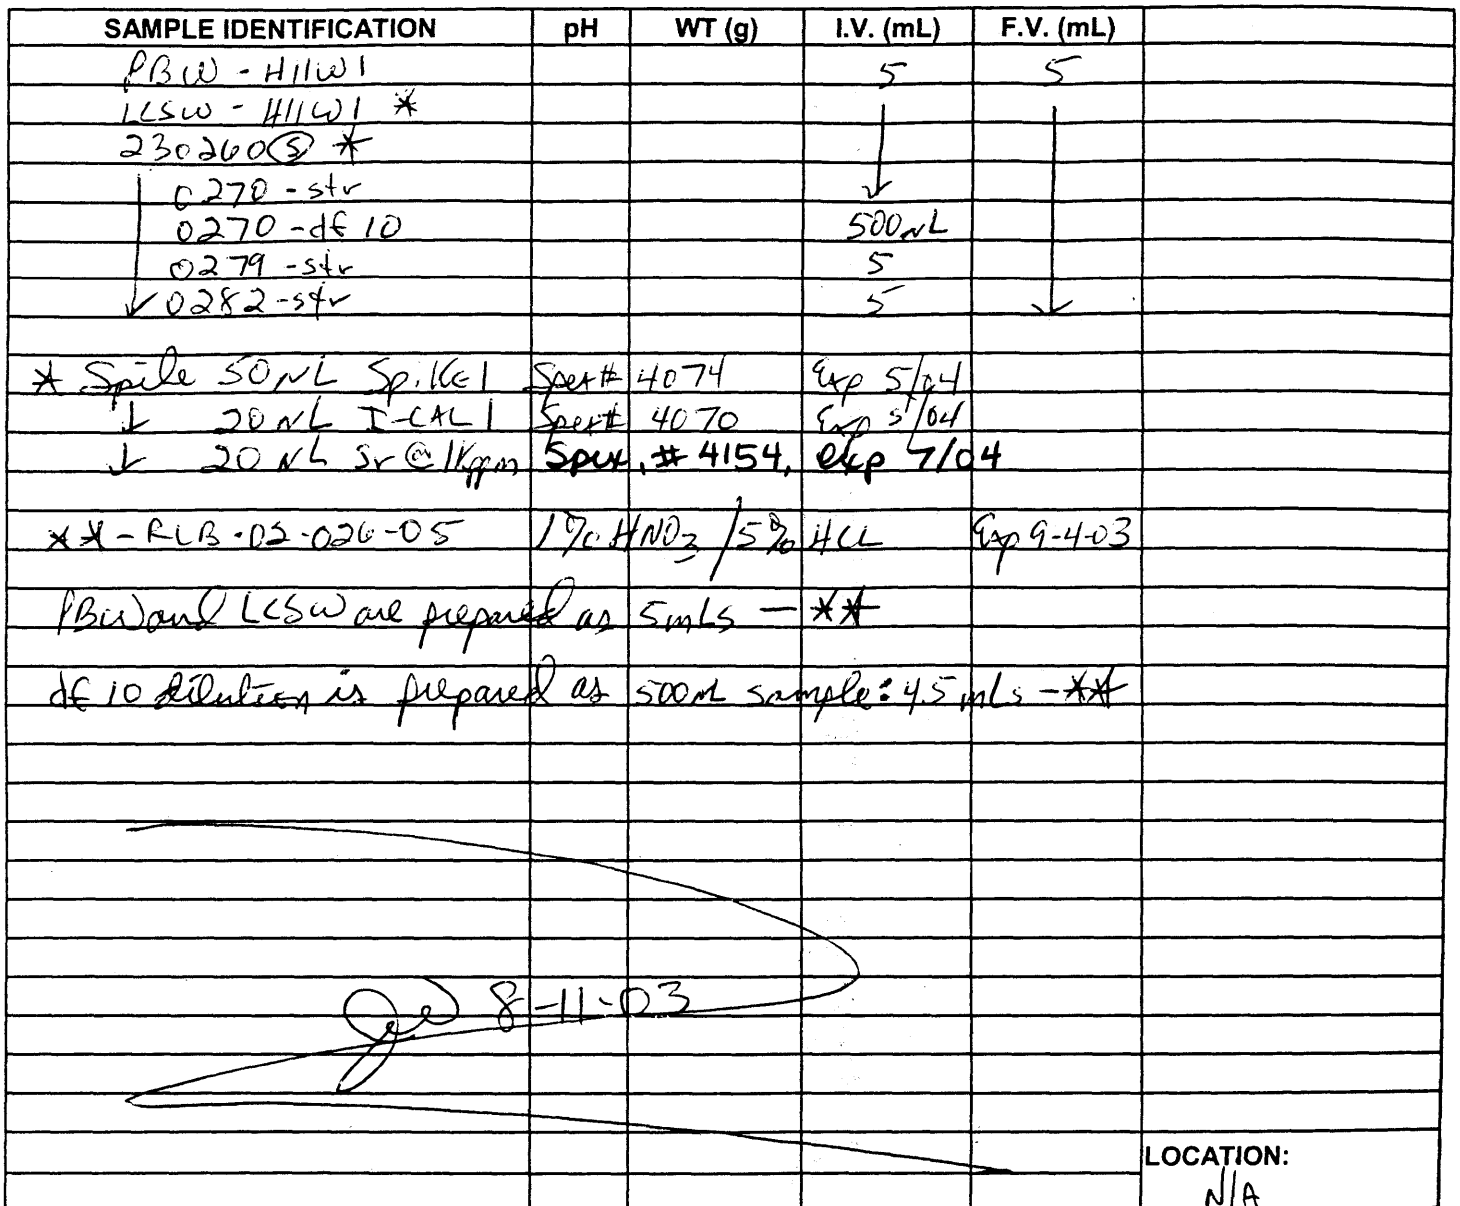 SAMPLE IDENTIFICATION pH WT (g) I.V. (mL) F.V. (mL)
PBW - H11W1 5 5
LCSW - H11W1 *
230260 (S) *
0270 - str
0270 - df 10 500 uL
0279 - str 5
0282 - str 5
* Spike 50 uL Spike 1 Spex# 4074 Exp 5/04
↓ 20 uL I-CAL 1 Spex# 4070 Exp 5/04
↓ 20 uL Sr @ 1Kppm Spex, # 4154, exp 7/04
** - RLB-02-026-05 1% HNO3 / 5% HCL Exp 9-4-03
PBW and LCSW are prepared as 5mLs - **
df 10 dilution is prepared as 500uL sample: 4.5 mLs - **
8-11-03
LOCATION:
N/A